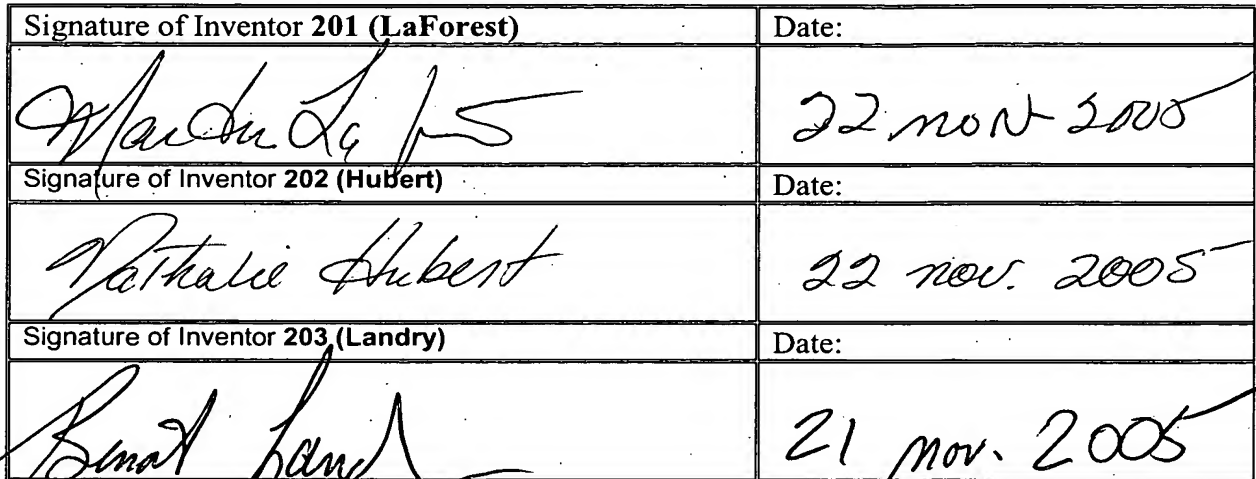 Signature of Inventor 201 (LaForest) Date:
Martin La 22 nov 2005
Signature of Inventor 202 (Hubert) Date:
Nathalie Hubert 22 nov. 2005
Signature of Inventor 203 (Landry) Date:
Benoit Land 21 nov. 2005